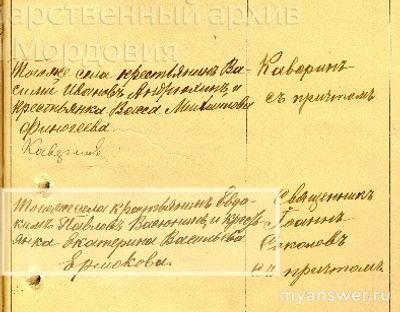 дарственный архив
Мордовия
Тогоже села крестьянинъ Ва-
силий Ивановъ Андрюхинъ, и
крестьянка Васса Михайлова
Финогеева.
Каверинъ
съ причтомъ
Тогоже села крестьянинъ Евдо-
кимъ Павловъ Васюнинъ, и кресть-
янка Екатерина Васильева
Ермокова.
Священникъ
Іоаннъ
Соколовъ
съ причтомъ
myanswer.ru